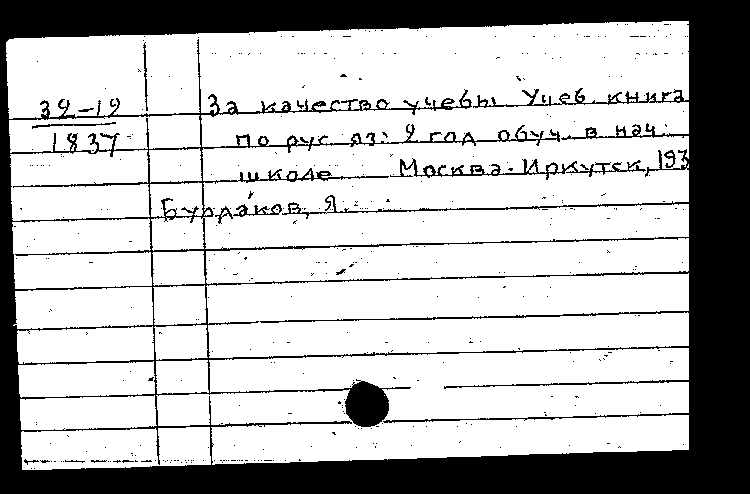 32-12
1837
За качество учебы Учеб. книга
по рус яз: 2 год обуч. в нач.
школе Москва-Иркутск, 193
Бурдаков, Я.